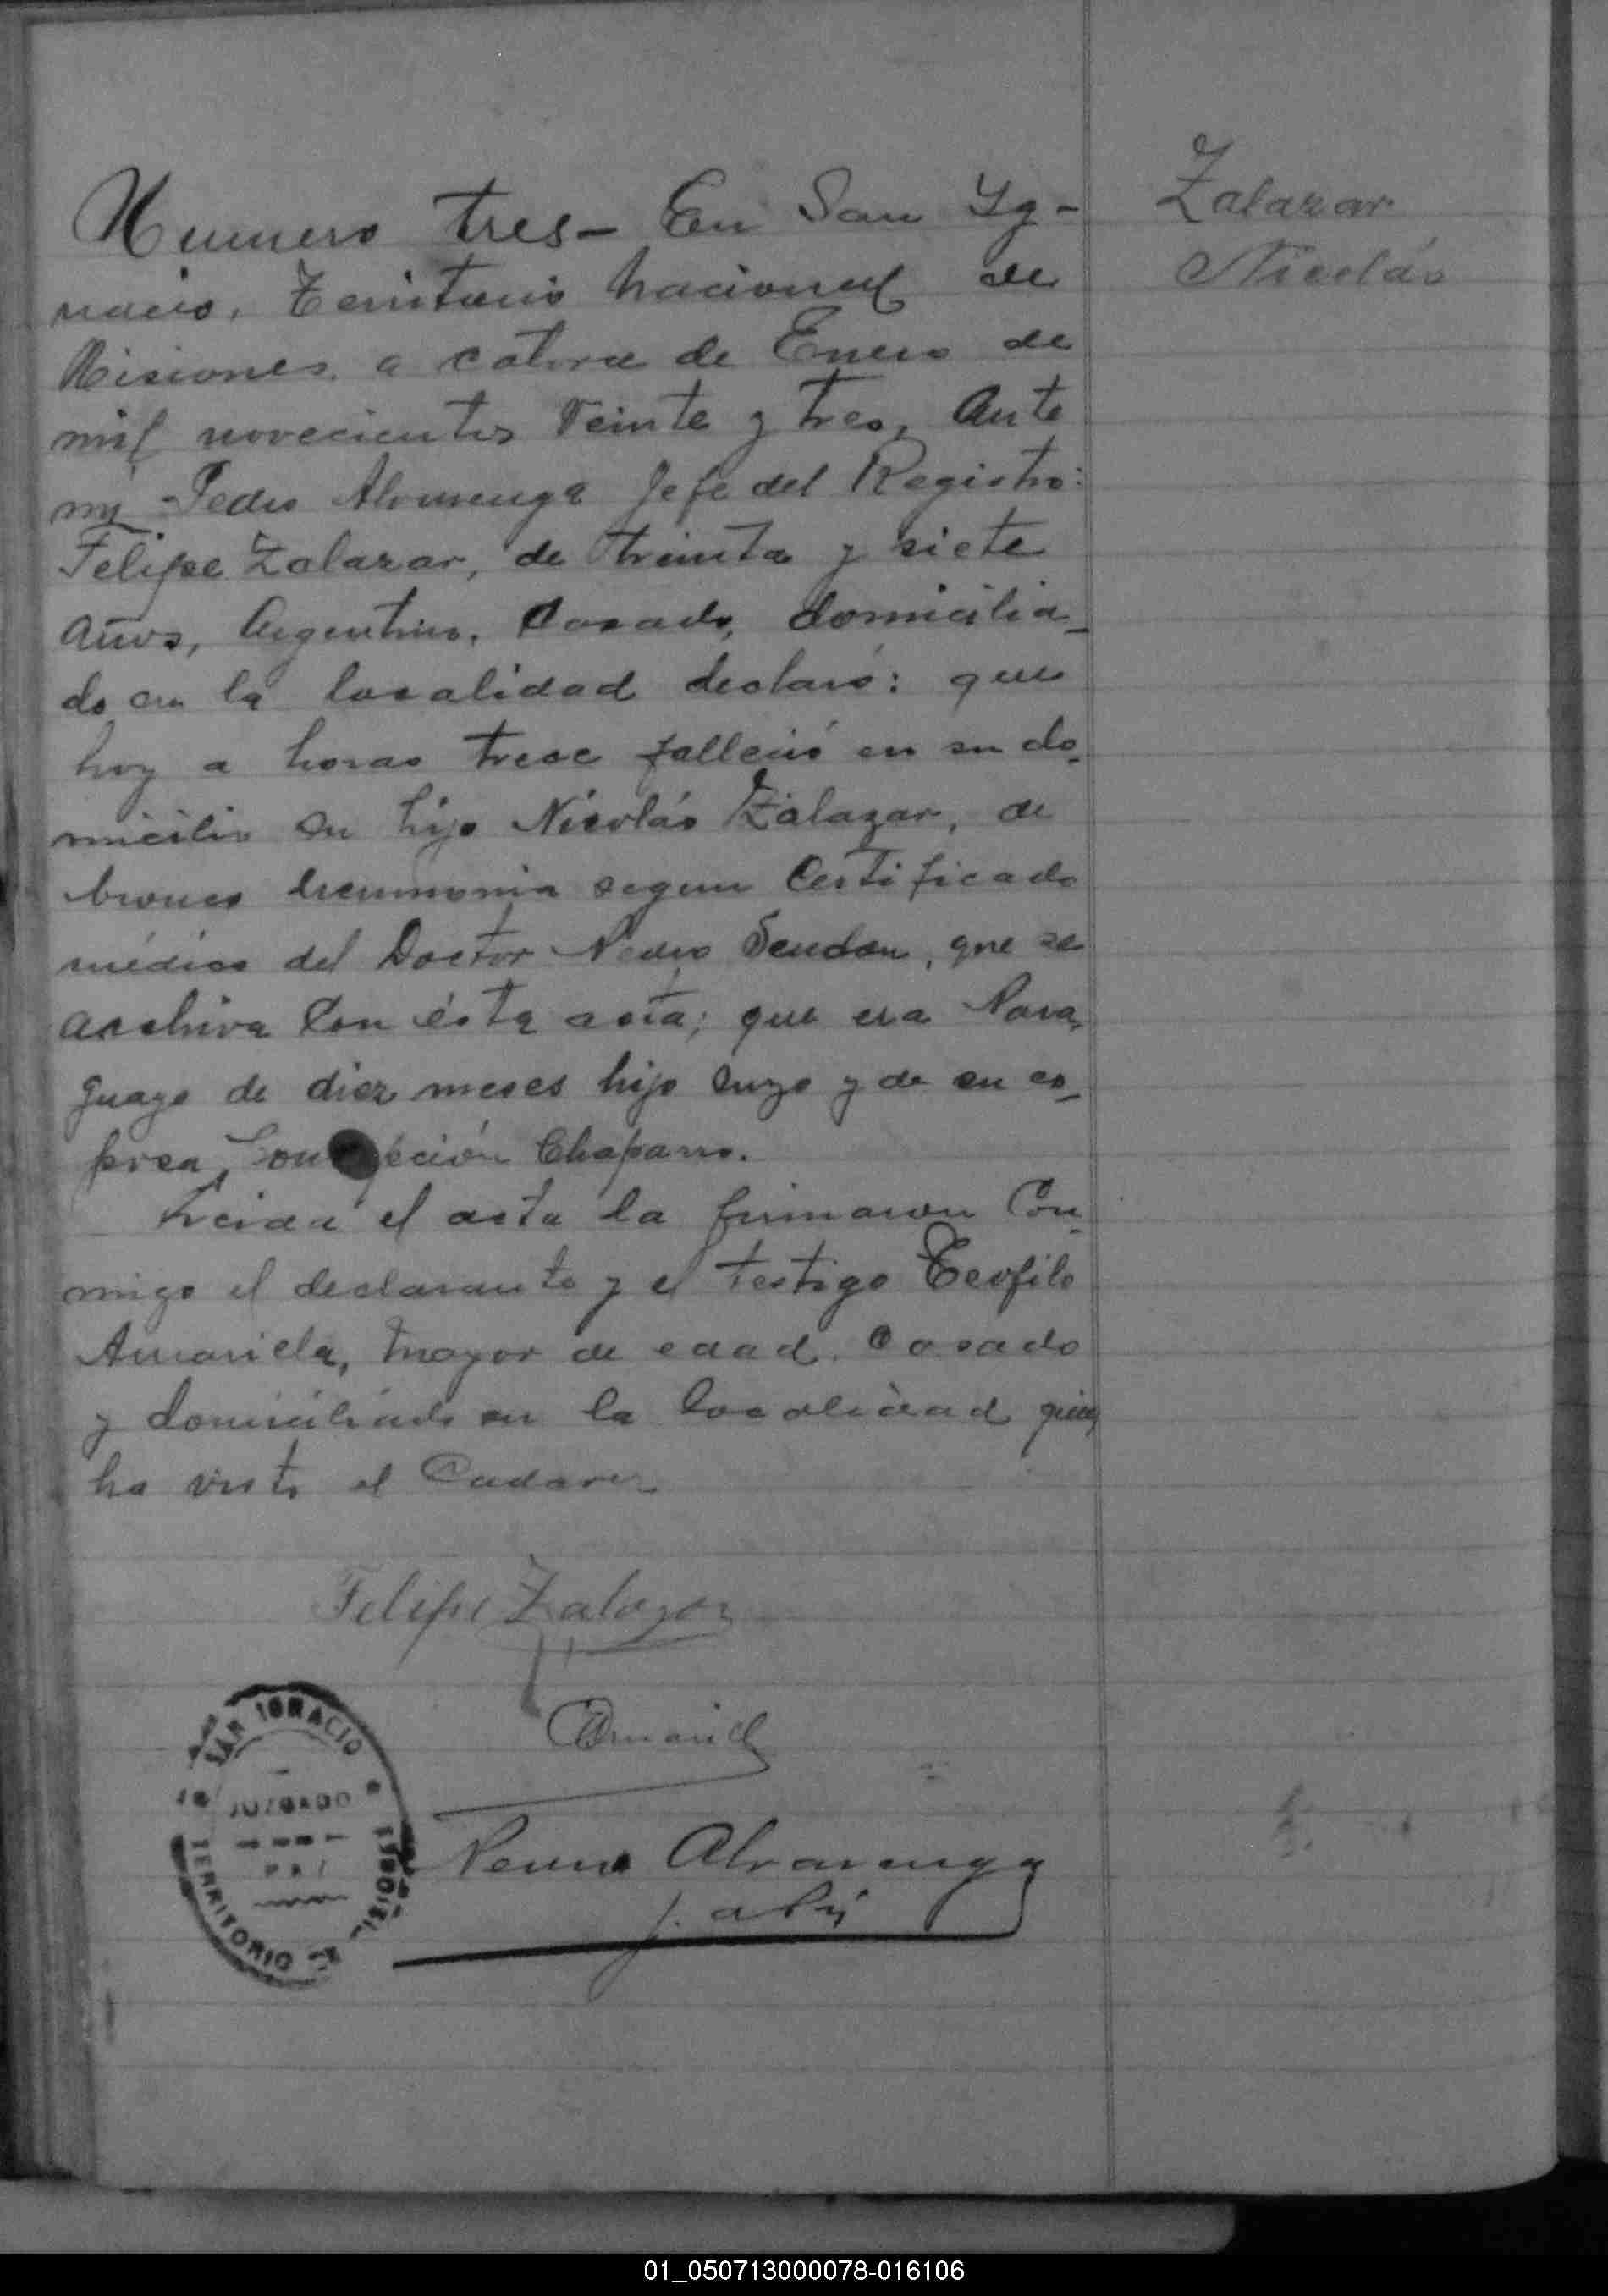 Numero tres - En San Yg-
nacio, Territorio Nacional de
Misiones, a catorce de Enero de
mil novecientos veinte y tres, Ante
mi Pedro Alvarenga Jefe del Registro:
Felipe Zalazar, de treinta y siete
años, Argentino, Casado, domicilia-
do en la localidad declaró: que
hoy a horas trece falleció en su do-
micilio su hijo Nicolás Zalazar, de
bronco neumonia segun Certificado
médico del Doctor Pedro, que se
archiva con ésta acta; que era Para-
guayo de diez meses hijo suyo y de su es-
posa, Chaparro.
Leida el acta la firmaron Con-
migo el declarante y el testigo Teofilo
Amarilla, mayor de edad, Casado
y domiciliado en la localidad quien
ha visto el Cadaver
Zalazar
Nicolás
Felipe Zalazar
SAN IGNACIO
JUZGADO
TERRITORIO
Alvarenga
01_050713000078-016106